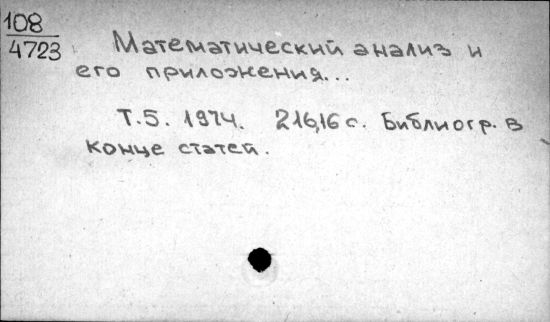 108
4723
Математический анализ и
его приложения...
Т.5. 1974. 216,16 с. Библиогр. в
конце статей.